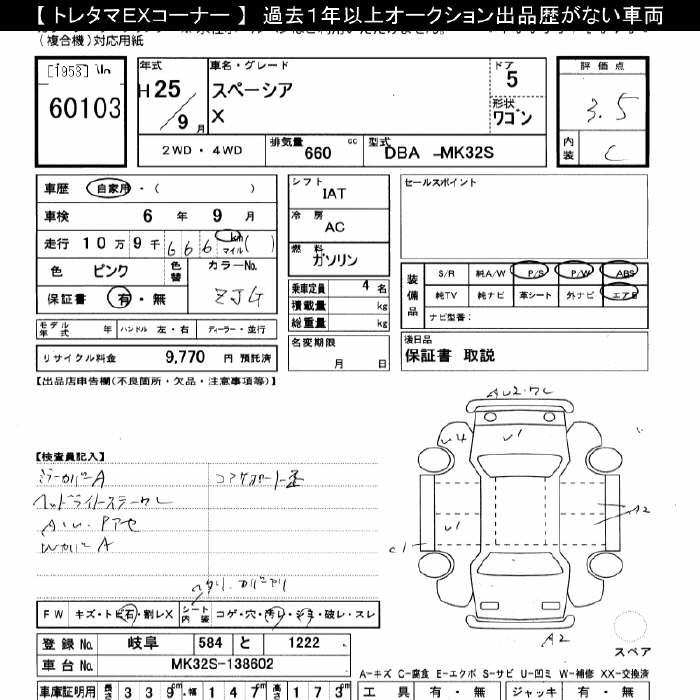 【 トレタマEXコーナー 】 過去1年以上オークション出品歴がない車両
(複合機)対応用紙
60103
年式 H 25 / 9 月
車名・グレード
スペーシア
X
ドア 5
形状 ワゴン
評価点 3.5
内装 C
2WD ・ 4WD
排気量 660 cc
型式 DBA -MK32S
車歴 自家用 ・ ( )
車検 6 年 9 月
走行 10万 9千 6 6 6 km マイル ( )
色 ピンク 色替 カラーNo. ZJG
保証書 有 ・ 無
モデル年式 年 ハンドル 左・右 ディーラー・並行
リサイクル料金 9,770 円 預託済
シフト IAT
冷房 AC
燃料 ガソリン
乗車定員 4 名
積載量 kg
総重量 kg
名変期限 月 日
セールスポイント
装備品 S/R 純A/W P/S P/W ABS
純TV 純ナビ 革シート 外ナビ エアB
ナビ型番:
後日品
保証書 取説
【出品店申告欄(不良箇所・欠品・注意事項等)】
【検査員記入】
ミラーカバーA
コアサポート歪
WカバーA
U4
U1
U1
A2
C1
A2
スペア
FW キズ・トビ石・割レX シート内装 コゲ・穴・汚レ・シミ・破レ・スレ
登録 No. 岐阜 584 と 1222
車台 No. MK32S-138602
A-キズ C-腐食 E-エクボ S-サビ U-凹ミ W-補修 XX-交換済
車庫証明用 長さ 3 3 9 cm ・ 幅 1 4 7 cm 高さ 1 7 3 cm
工具 有 ・ 無 ジャッキ 有 ・ 無